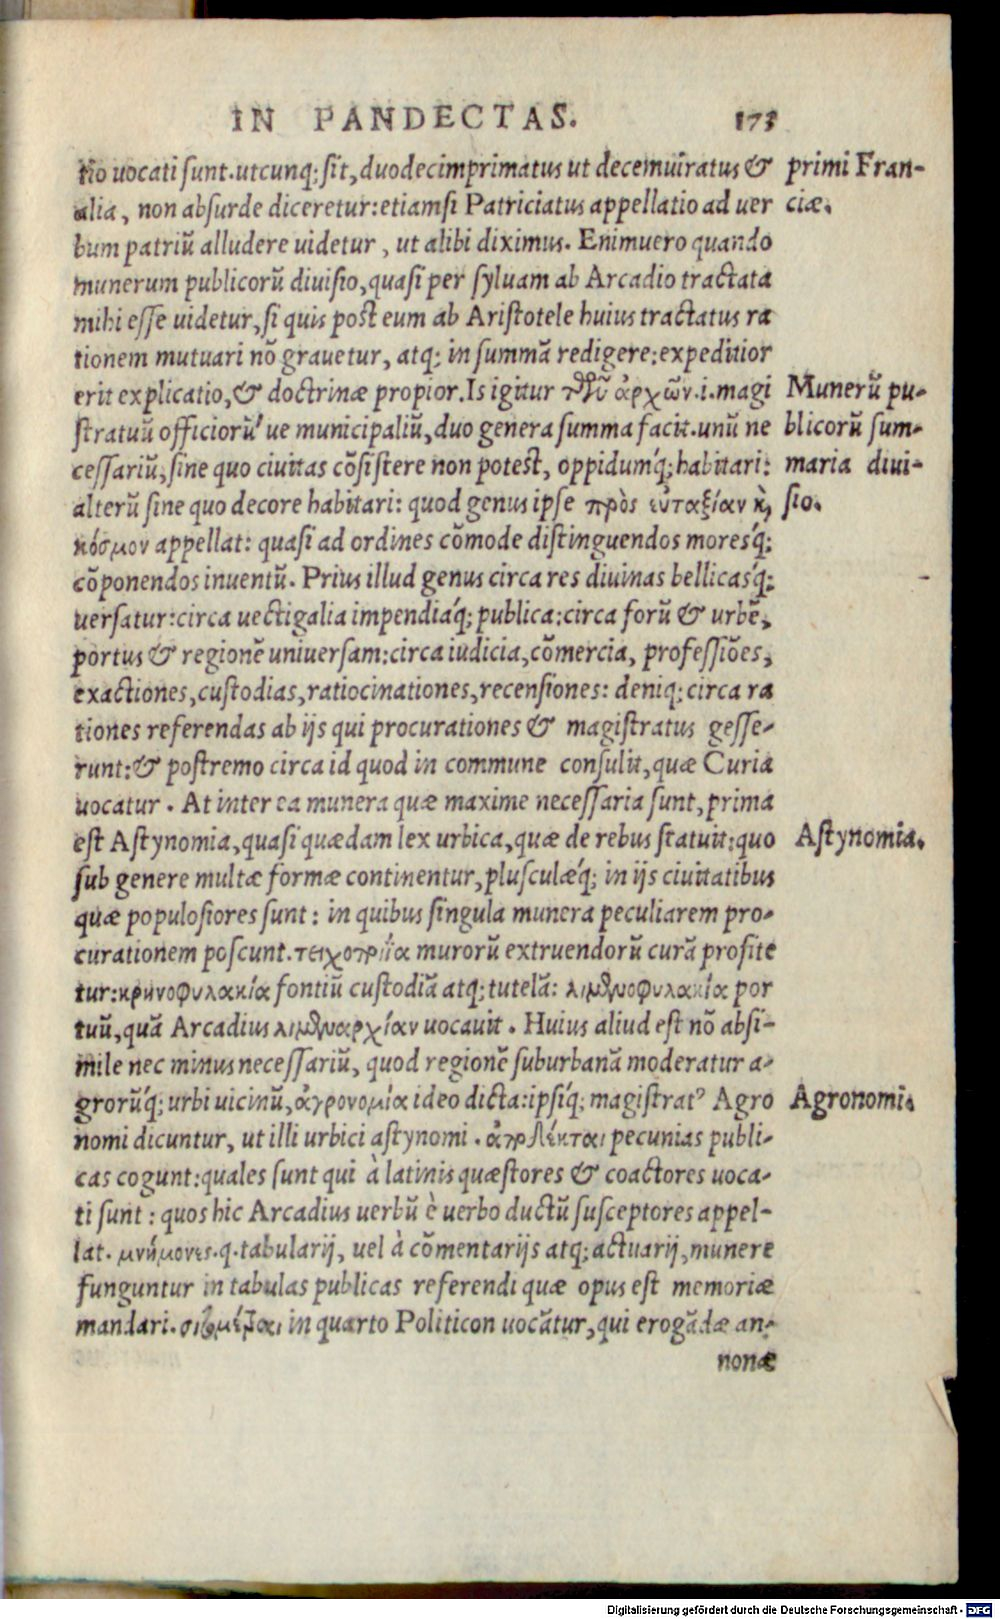 IN PANDECTAS. 173
tio uocati sunt. utcunq; sit, duodecimprimatus ut decemuiratus &
alia, non absurde diceretur: etiamsi Patriciatus appellatio ad uer
bum patriũ alludere uidetur, ut alibi diximus. Enimuero quando
munerum publicorũ diuisio, quasi per syluam ab Arcadio tractata
mihi esse uidetur, si quis post eum ab Aristotele huius tractatus ra
tionem mutuari nõ grauetur, atq; in summã redigere: expeditior
erit explicatio, & doctrinæ propior. Is igitur τῶν ἀρχῶν .i. magi
stratuũ officiorũ ue municipaliũ, duo genera summa facit. unũ ne
cessariũ, sine quo ciuitas cõsistere non potest, oppidumq́; habitari:
alterũ sine quo decore habitari: quod genus ipse πρὸς εὐταξίαν κ̀
κόσμον appellat: quasi ad ordines cõmode distinguendos moresq́;
cõponendos inuentũ. Prius illud genus circa res diuinas bellicasq́;
uersatur: circa uectigalia impendiaq́; publica: circa forũ & urbẽ,
portus & regionẽ uniuersam: circa iudicia, cõmercia, professiões,
exactiones, custodias, ratiocinationes, recensiones: deniq; circa ra
tiones referendas ab ijs qui procurationes & magistratus gesse-
runt: & postremo circa id quod in commune consulit, quæ Curia
uocatur. At inter ea munera quæ maxime necessaria sunt, prima
est Astynomia, quasi quædam lex urbica, quæ de rebus statuit: quo
sub genere multæ formæ continentur, plusculæq́; in ijs ciuitatibus
quæ populosiores sunt: in quibus singula munera peculiarem pro-
curationem poscunt. murorũ extruendorũ curã profite
tur: κρηνοφυλακία fontiũ custodiã atq; tutelã: λιμενοφυλακία por
tuũ, quã Arcadius λιμεναρχίαν uocauit. Huius aliud est nõ absi-
mile nec minus necessariũ, quod regionẽ suburbanã moderatur a-
grorũq́; urbi uicinũ, ἀγρονομία ideo dicta: ipsiq́; magistratꝰ Agro
nomi dicuntur, ut illi urbici astynomi. ἀποδέκται pecunias publi-
cas cogunt: quales sunt qui à latinis quæstores & coactores uoca-
ti sunt: quos hic Arcadius uerbũ è uerbo ductũ susceptores appel-
lat. μνήμονες .q. tabularij, uel à cõmentarijs atq; actuarij, munere
funguntur in tabulas publicas referendi quæ opus est memoriæ
mandari. σιτομέτραι in quarto Politicon uocãtur, qui erogãdæ an-
nonæ
primi Fran-
ciæ.
Munerũ pu-
blicorũ sum-
maria diui-
sio.
Astynomia.
Agronomi.
Digitalisierung gefördert durch die Deutsche Forschungsgemeinschaft - DFG